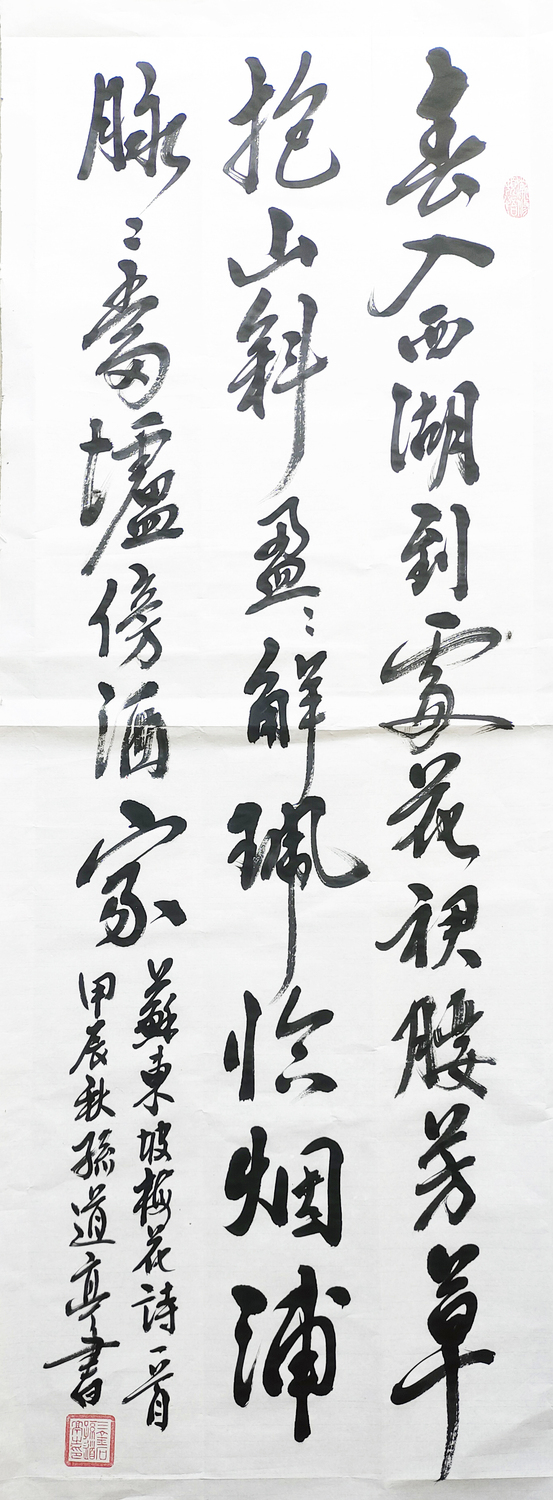 春入西湖到處花裙腰芳草
抱山斜盈〻解珮臨烟浦
脉〻當壚傍酒家
蘇東坡梅花詩一首
甲辰秋孫道亭書